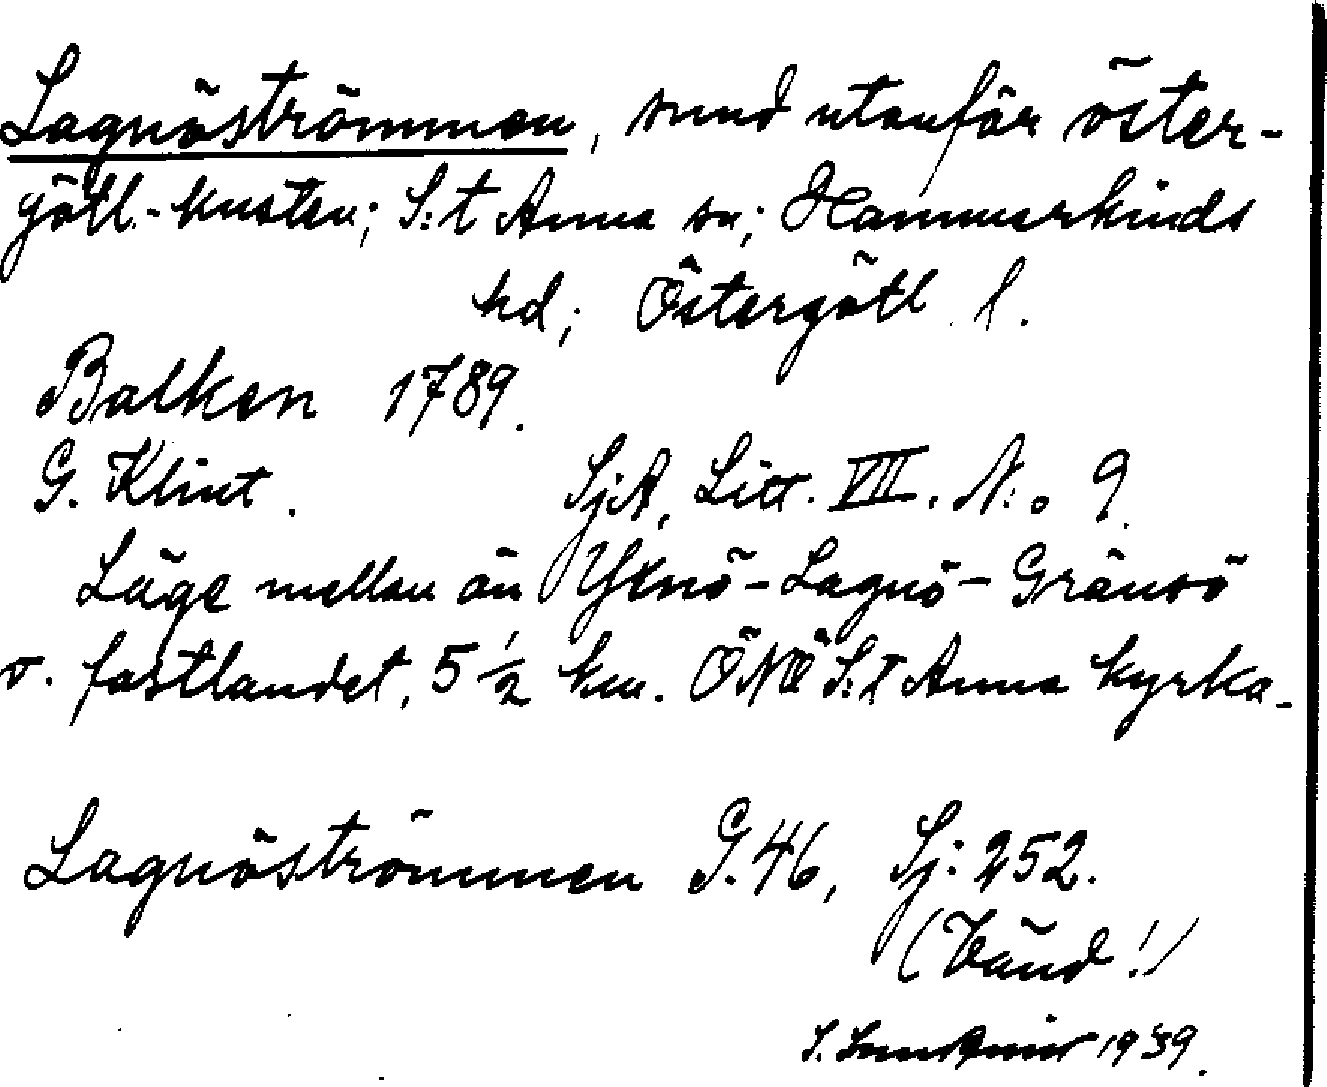 Lagnöströmmen, sund utanför öster-
götl.-kusten; S:t Anna sn; Hammarkinds
hd; Östergötl. l.
Balken 1789.
G. Klint. SjA, Litt. VIII. N:o 9.
Läge mellan ön Yxnö-Lagnö-Gränsö
o. fastlandet, 5 1/2 km. ÖNÖ S:t Anna kyrka.
Lagnöströmmen G.46, Sj: 252.
(Vänd!)
S. 1939.